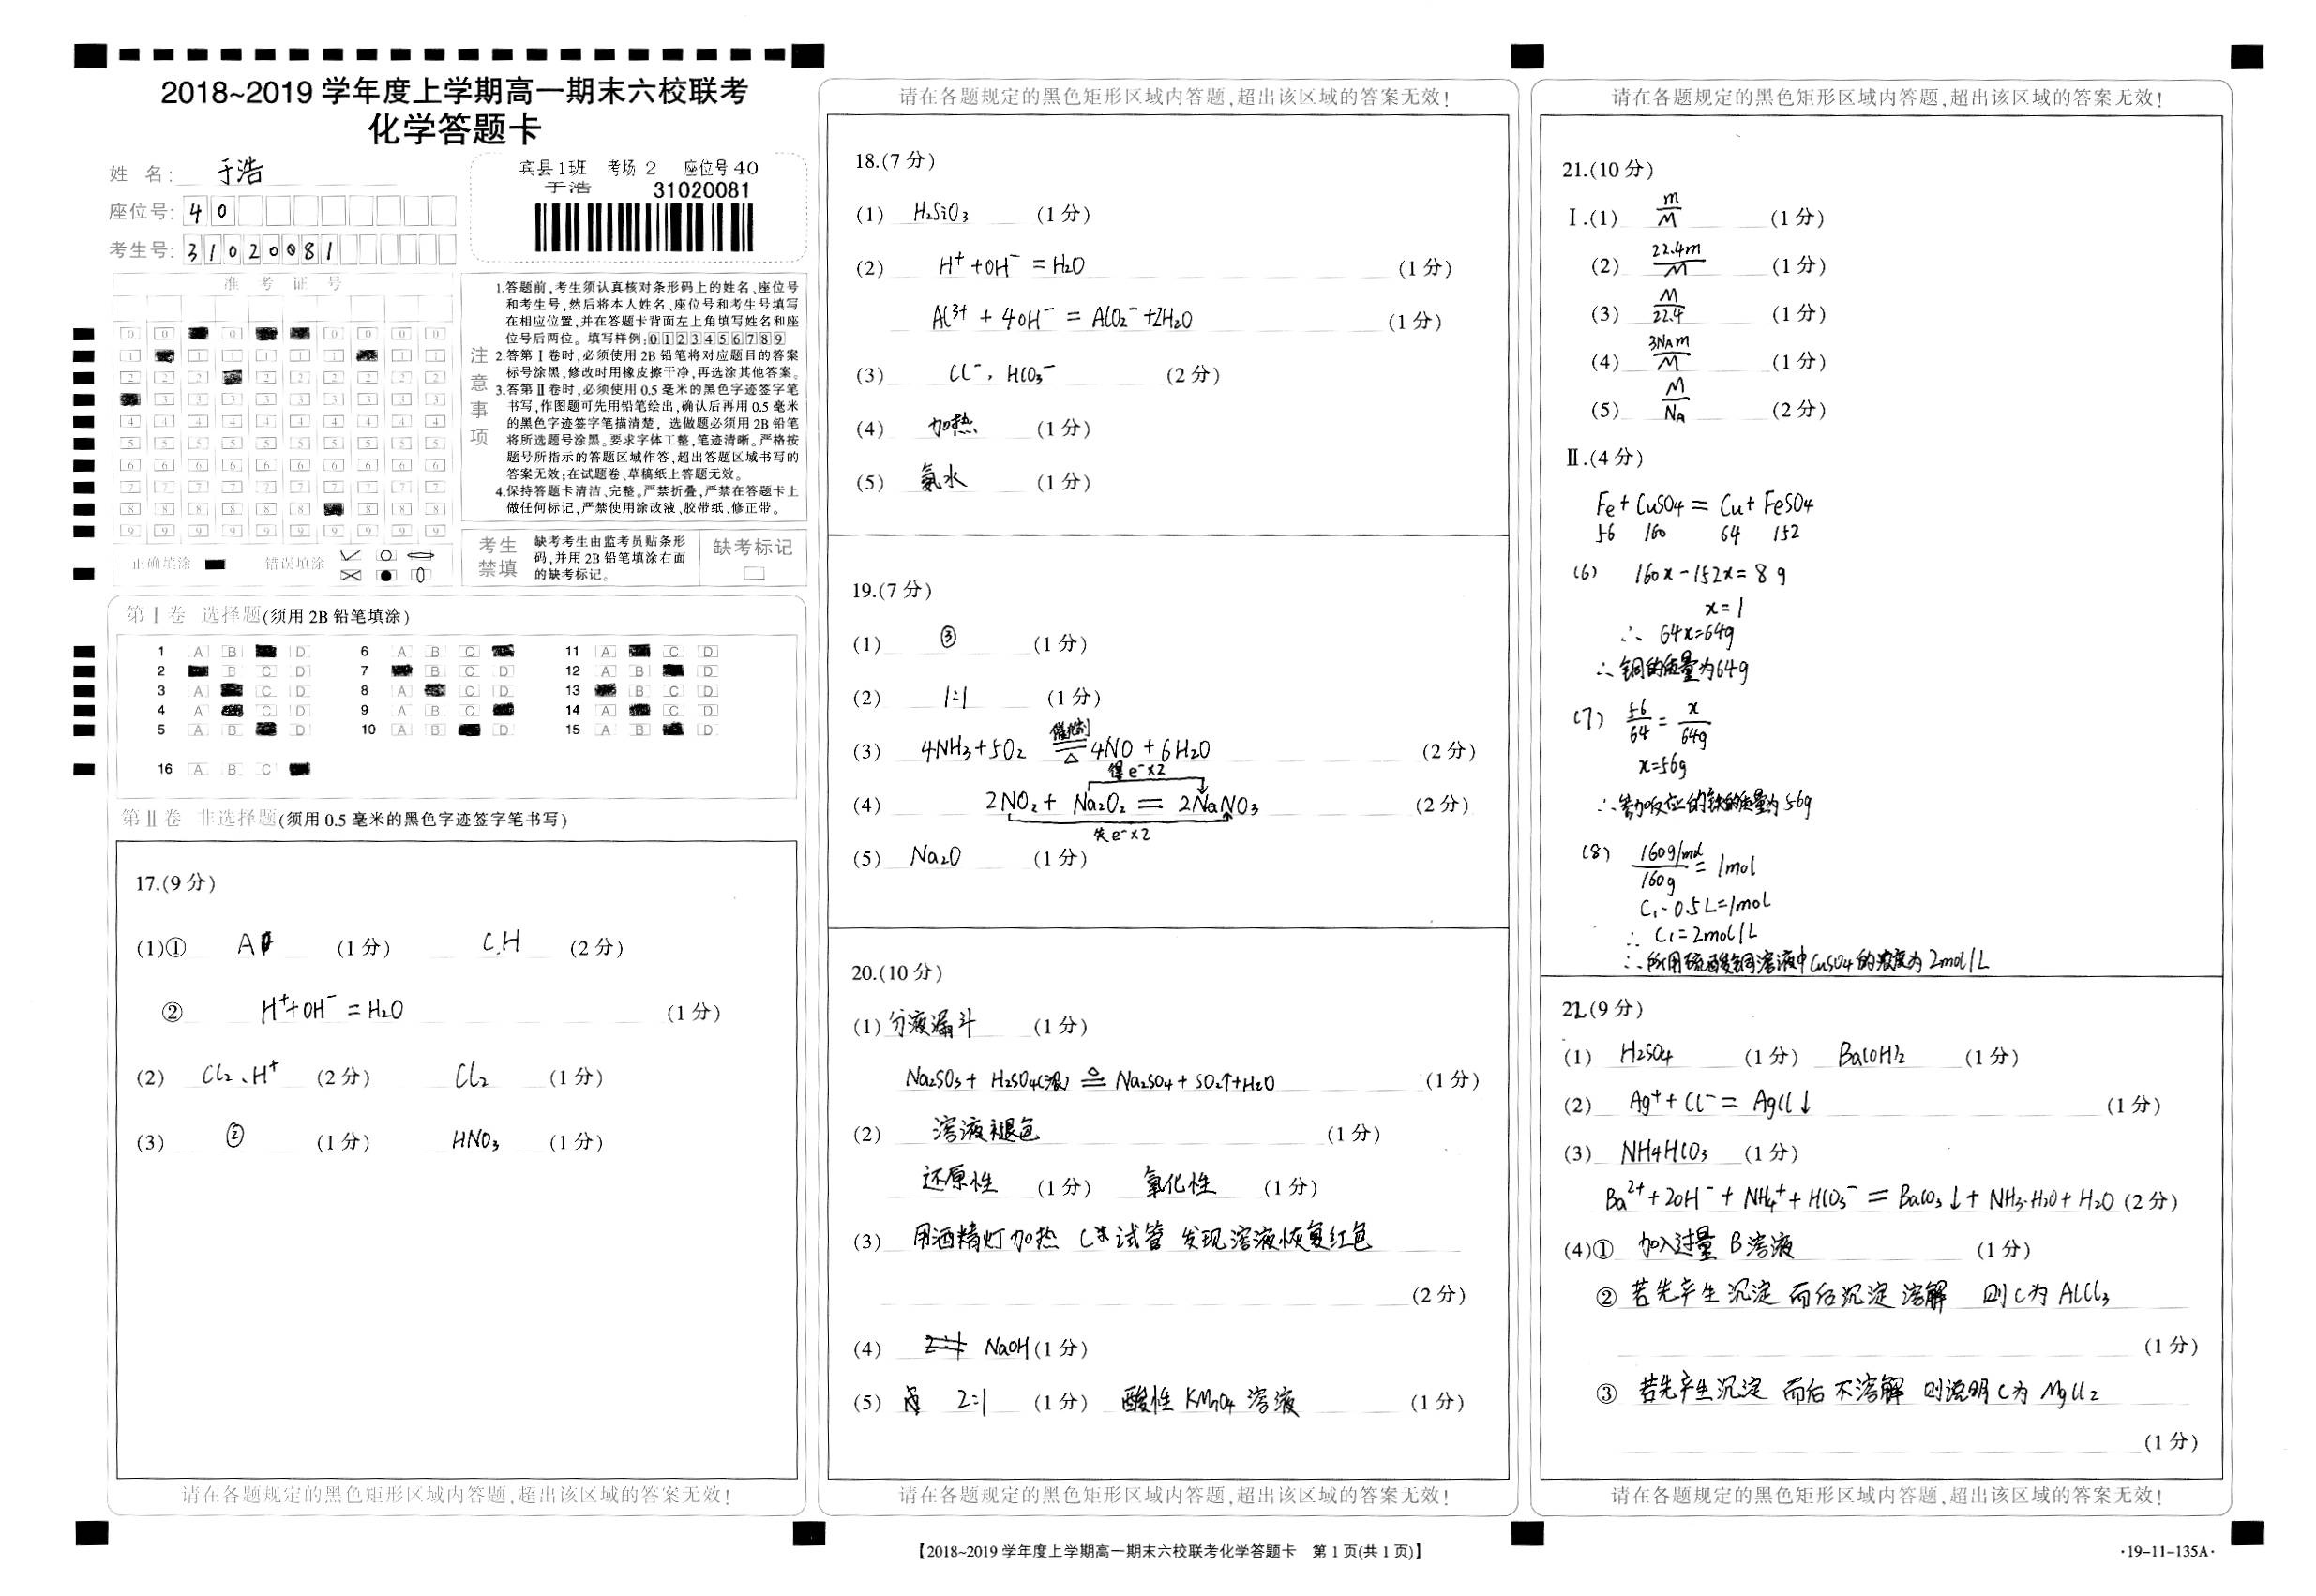 2018~2019 学年度上学期高一期末六校联考
化学答题卡
姓 名: 于浩
座位号: 4 0
考生号: 3 1 0 2 0 0 8 1
宾县1班 考场 2 座位号 40
于浩 31020081
准 考 证 号
0 0 0 0 0 0 0
1 1 1 1 1 1 1 1
2 2 2 2 2 2 2 2 2
3 3 3 3 3 3 3 3 3
4 4 4 4 4 4 4 4 4 4
5 5 5 5 5 5 5 5 5 5
6 6 6 6 6 6 6 6 6 6
7 7 7 7 7 7 7 7 7 7
8 8 8 8 8 8 8 8 8
9 9 9 9 9 9 9 9 9 9
正确填涂 错误填涂
注意事项
1.答题前,考生须认真核对条形码上的姓名、座位号
和考生号,然后将本人姓名、座位号和考生号填写
在相应位置,并在答题卡背面左上角填写姓名和座
位号后两位。填写样例:0 1 2 3 4 5 6 7 8 9
2.答第Ⅰ卷时,必须使用 2B 铅笔将对应题目的答案
标号涂黑,修改时用橡皮擦干净,再选涂其他答案。
3.答第Ⅱ卷时,必须使用 0.5 毫米的黑色字迹签字笔
书写,作图题可先用铅笔绘出,确认后再用 0.5 毫米
的黑色字迹签字笔描清楚, 选做题必须用 2B 铅笔
将所选题号涂黑。要求字体工整,笔迹清晰。严格按
题号所指示的答题区域作答,超出答题区域书写的
答案无效;在试题卷、草稿纸上答题无效。
4.保持答题卡清洁、完整。严禁折叠,严禁在答题卡上
做任何标记,严禁使用涂改液、胶带纸、修正带。
考生
禁填
缺考考生由监考员贴条形
码,并用 2B 铅笔填涂右面
的缺考标记。
缺考标记
第Ⅰ卷 选择题(须用 2B 铅笔填涂)
1 A B D 6 A B C 11 A C D
2 B C D 7 B C D 12 A B D
3 A C D 8 A C D 13 B C D
4 A C D 9 A B C 14 A C D
5 A B D 10 A B D 15 A B D
16 A B C
第Ⅱ卷 非选择题(须用 0.5 毫米的黑色字迹签字笔书写)
17.(9分)
(1)① A (1分) C.H (2分)
② H⁺+OH⁻=H₂O (1分)
(2) Cl₂、H⁺ (2分) Cl₂ (1分)
(3) ② (1分) HNO₃ (1分)
请在各题规定的黑色矩形区域内答题,超出该区域的答案无效!
请在各题规定的黑色矩形区域内答题,超出该区域的答案无效!
18.(7分)
(1) H₂SiO₃ (1分)
(2) H⁺+OH⁻=H₂O (1分)
Al³⁺+4OH⁻=AlO₂⁻+2H₂O (1分)
(3) Cl⁻,HCO₃⁻ (2分)
(4) 加热 (1分)
(5) 氨水 (1分)
19.(7分)
(1) ③ (1分)
(2) 1:1 (1分)
(3) 4NH₃+5O₂ 催化剂 ═ △ 4NO+6H₂O (2分)
得e⁻×2
(4) 2NO₂+Na₂O₂=2NaNO₃ (2分)
失e⁻×2
(5) Na₂O (1分)
20.(10分)
(1) 分液漏斗 (1分)
Na₂SO₃+H₂SO₄(浓) ≙ Na₂SO₄+SO₂↑+H₂O (1分)
(2) 溶液褪色 (1分)
还原性 (1分) 氧化性 (1分)
(3) 用酒精灯加热 C 试管 发现溶液恢复红色
(2分)
(4) NaOH (1分)
(5) 2:1 (1分) 酸性 KMnO₄ 溶液 (1分)
请在各题规定的黑色矩形区域内答题,超出该区域的答案无效!
【2018~2019 学年度上学期高一期末六校联考化学答题卡 第1页(共1页)】
请在各题规定的黑色矩形区域内答题,超出该区域的答案无效!
21.(10分)
Ⅰ.(1) m/M (1分)
(2) 22.4m/M (1分)
(3) M/22.4 (1分)
(4) 3NAm/M (1分)
(5) M/NA (2分)
Ⅱ.(4分)
Fe+CuSO₄=Cu+FeSO₄
56 160 64 152
(6) 160x-152x=8g
x=1
∴ 64x=64g
∴铜的质量为64g
(7) 56/64=x/64g
x=56g
∴参加反应的铁的质量为56g
(8) 160g/mol/160g=1mol
C₁·0.5L=1mol
∴ C₁=2mol/L
∴所用硫酸铜溶液中CuSO₄的浓度为2mol/L
22.(9分)
(1) H₂SO₄ (1分) Ba(OH)₂ (1分)
(2) Ag⁺+Cl⁻=AgCl↓ (1分)
(3) NH₄HCO₃ (1分)
Ba²⁺+2OH⁻+NH₄⁺+HCO₃⁻=BaCO₃↓+NH₃·H₂O+H₂O (2分)
(4)① 加入过量 B溶液 (1分)
② 若先产生沉淀 而后沉淀溶解 则C为 AlCl₃
(1分)
③ 若先产生沉淀 而后不溶解 则说明C为 MgCl₂
(1分)
请在各题规定的黑色矩形区域内答题,超出该区域的答案无效!
·19-11-135A·